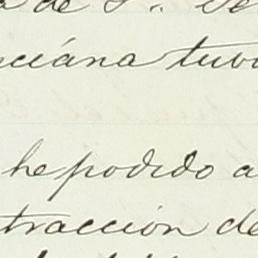 de S.
ciána tuvi
he podido a
tracción de